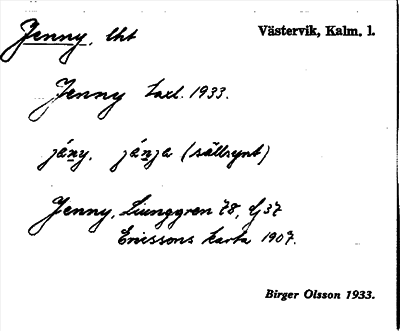 Jenny, lht Västervik, Kalm. l.
Jenny Taxl. 1933.
jány, jánja (sällsynt)
Jenny, Liunggren 78, Gj 37
Ericssons karta 1907.
Birger Olsson 1933.